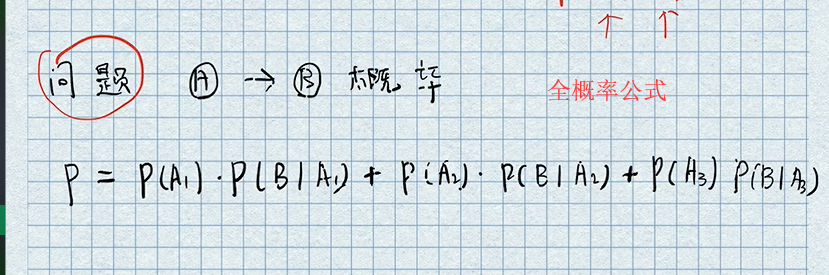 问题 Ⓐ → Ⓑ 概率 全概率公式
P = P(A₁)·P(B|A₁) + P(A₂)·P(B|A₂) + P(A₃) P(B|A₃)